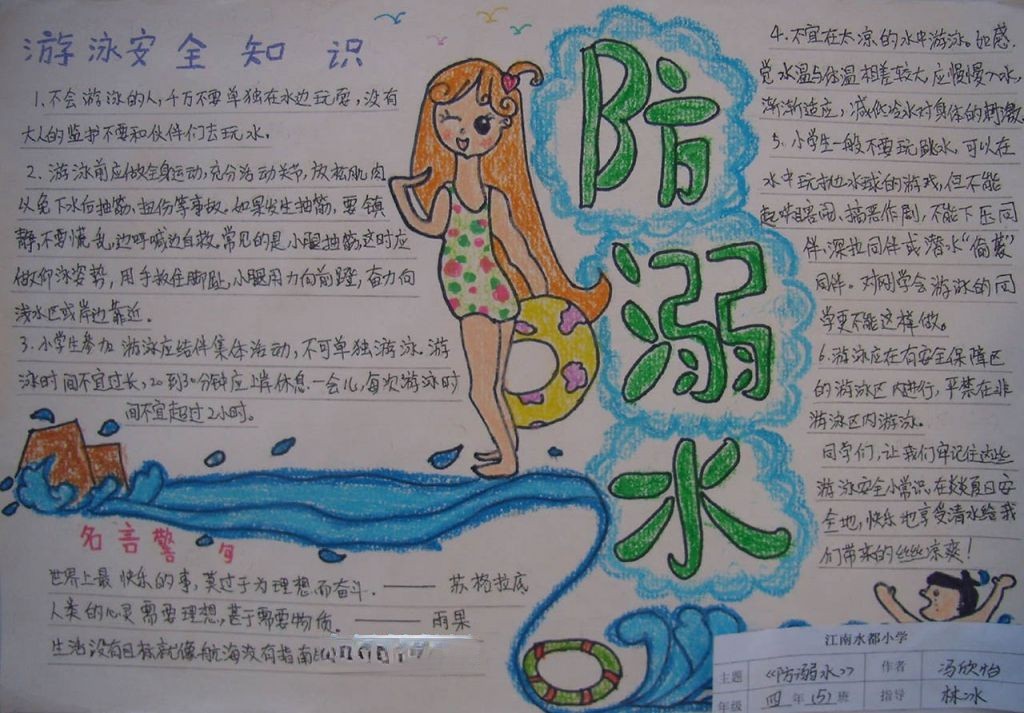 游泳安全知识
1、不会游泳的人，千万不要单独在水边玩耍，没有
大人的监护不要和伙伴们去玩水。
2、游泳前应做全身运动，充分活动关节，放松肌肉
以免下水后抽筋、扭伤等事故。如果发生抽筋，要镇
静，不要慌乱，边呼喊边自救。常见的是小腿抽筋，这时应
做仰泳姿势，用手扳住脚趾，小腿用力向前蹬，奋力向
浅水区或岸边靠近。
3、小学生参加游泳应结伴集体活动，不可单独游泳。游
泳时间不宜过长，20到30分钟应上岸休息一会儿，每次游泳时
间不宜超过2小时。
名言警句
世界上最快乐的事，莫过于为理想而奋斗。——苏格拉底
人类的心灵需要理想，甚于需要物质。——雨果
生活没有目标就像航海没有指南
防
溺
水
4、不宜在太凉的水中游泳。如感
觉水温与体温相差较大，应慢慢入水，
渐渐适应，减低冷水对身体的刺激。
5、小学生一般不要玩跳水，可以在
水中玩抛水球的游戏，但不能
起哄喧闹、搞恶作剧，不能下压同
伴、深拉同伴或潜水“偷袭”
同伴。对刚学会游泳的同
学更不能这样做。
6、游泳应在有安全保障区
的游泳区内进行，严禁在非
游泳区内游泳。
同学们，让我们牢记住这些
游泳安全小常识，在炎炎夏日安
全地，快乐地享受清水给我
们带来的丝丝凉爽！
江南水都小学
主题 《防溺水》 作者 冯欣怡
年级 四年(5)班 指导 林冰